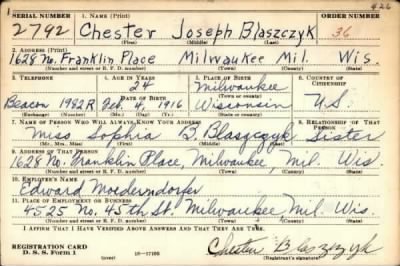 426
SERIAL NUMBER 1. NAME (Print) ORDER NUMBER
2792 Chester Joseph Blaszczyk 36
(First) (Middle) (Last)
2. ADDRESS (Print)
1628 No. Franklin Place Milwaukee Mil. Wis.
(Number and street or R. F. D. number) (Town) (County) (State)
3. TELEPHONE 4. AGE IN YEARS 5. PLACE OF BIRTH 6. COUNTRY OF CITIZENSHIP
24 Milwaukee
DATE OF BIRTH (Town or county)
Beacon 1982R Feb. 4, 1916 Wisconsin U.S.
(Exchange) (Number) (Mo.) (Day) (Yr.) (State or country)
7. NAME OF PERSON WHO WILL ALWAYS KNOW YOUR ADDRESS 8. RELATIONSHIP OF THAT PERSON
Miss Sophia B. Blaszczyk Sister
(Mr., Mrs., Miss) (First) (Middle) (Last)
9. ADDRESS OF THAT PERSON
1628 No. Franklin Place, Milwaukee, Mil. Wis.
(Number and street or R. F. D. number) (Town) (County) (State)
10. EMPLOYER'S NAME
Edward Moederndorfer
11. PLACE OF EMPLOYMENT OR BUSINESS
4525 No. 45th St. Milwaukee Mil. Wis.
(Number and street or R. F. D. number) (Town) (County) (State)
I AFFIRM THAT I HAVE VERIFIED ABOVE ANSWERS AND THAT THEY ARE TRUE.
REGISTRATION CARD
D. S. S. Form 1 16—17105 Chester Blaszczyk
(Registrant's signature)